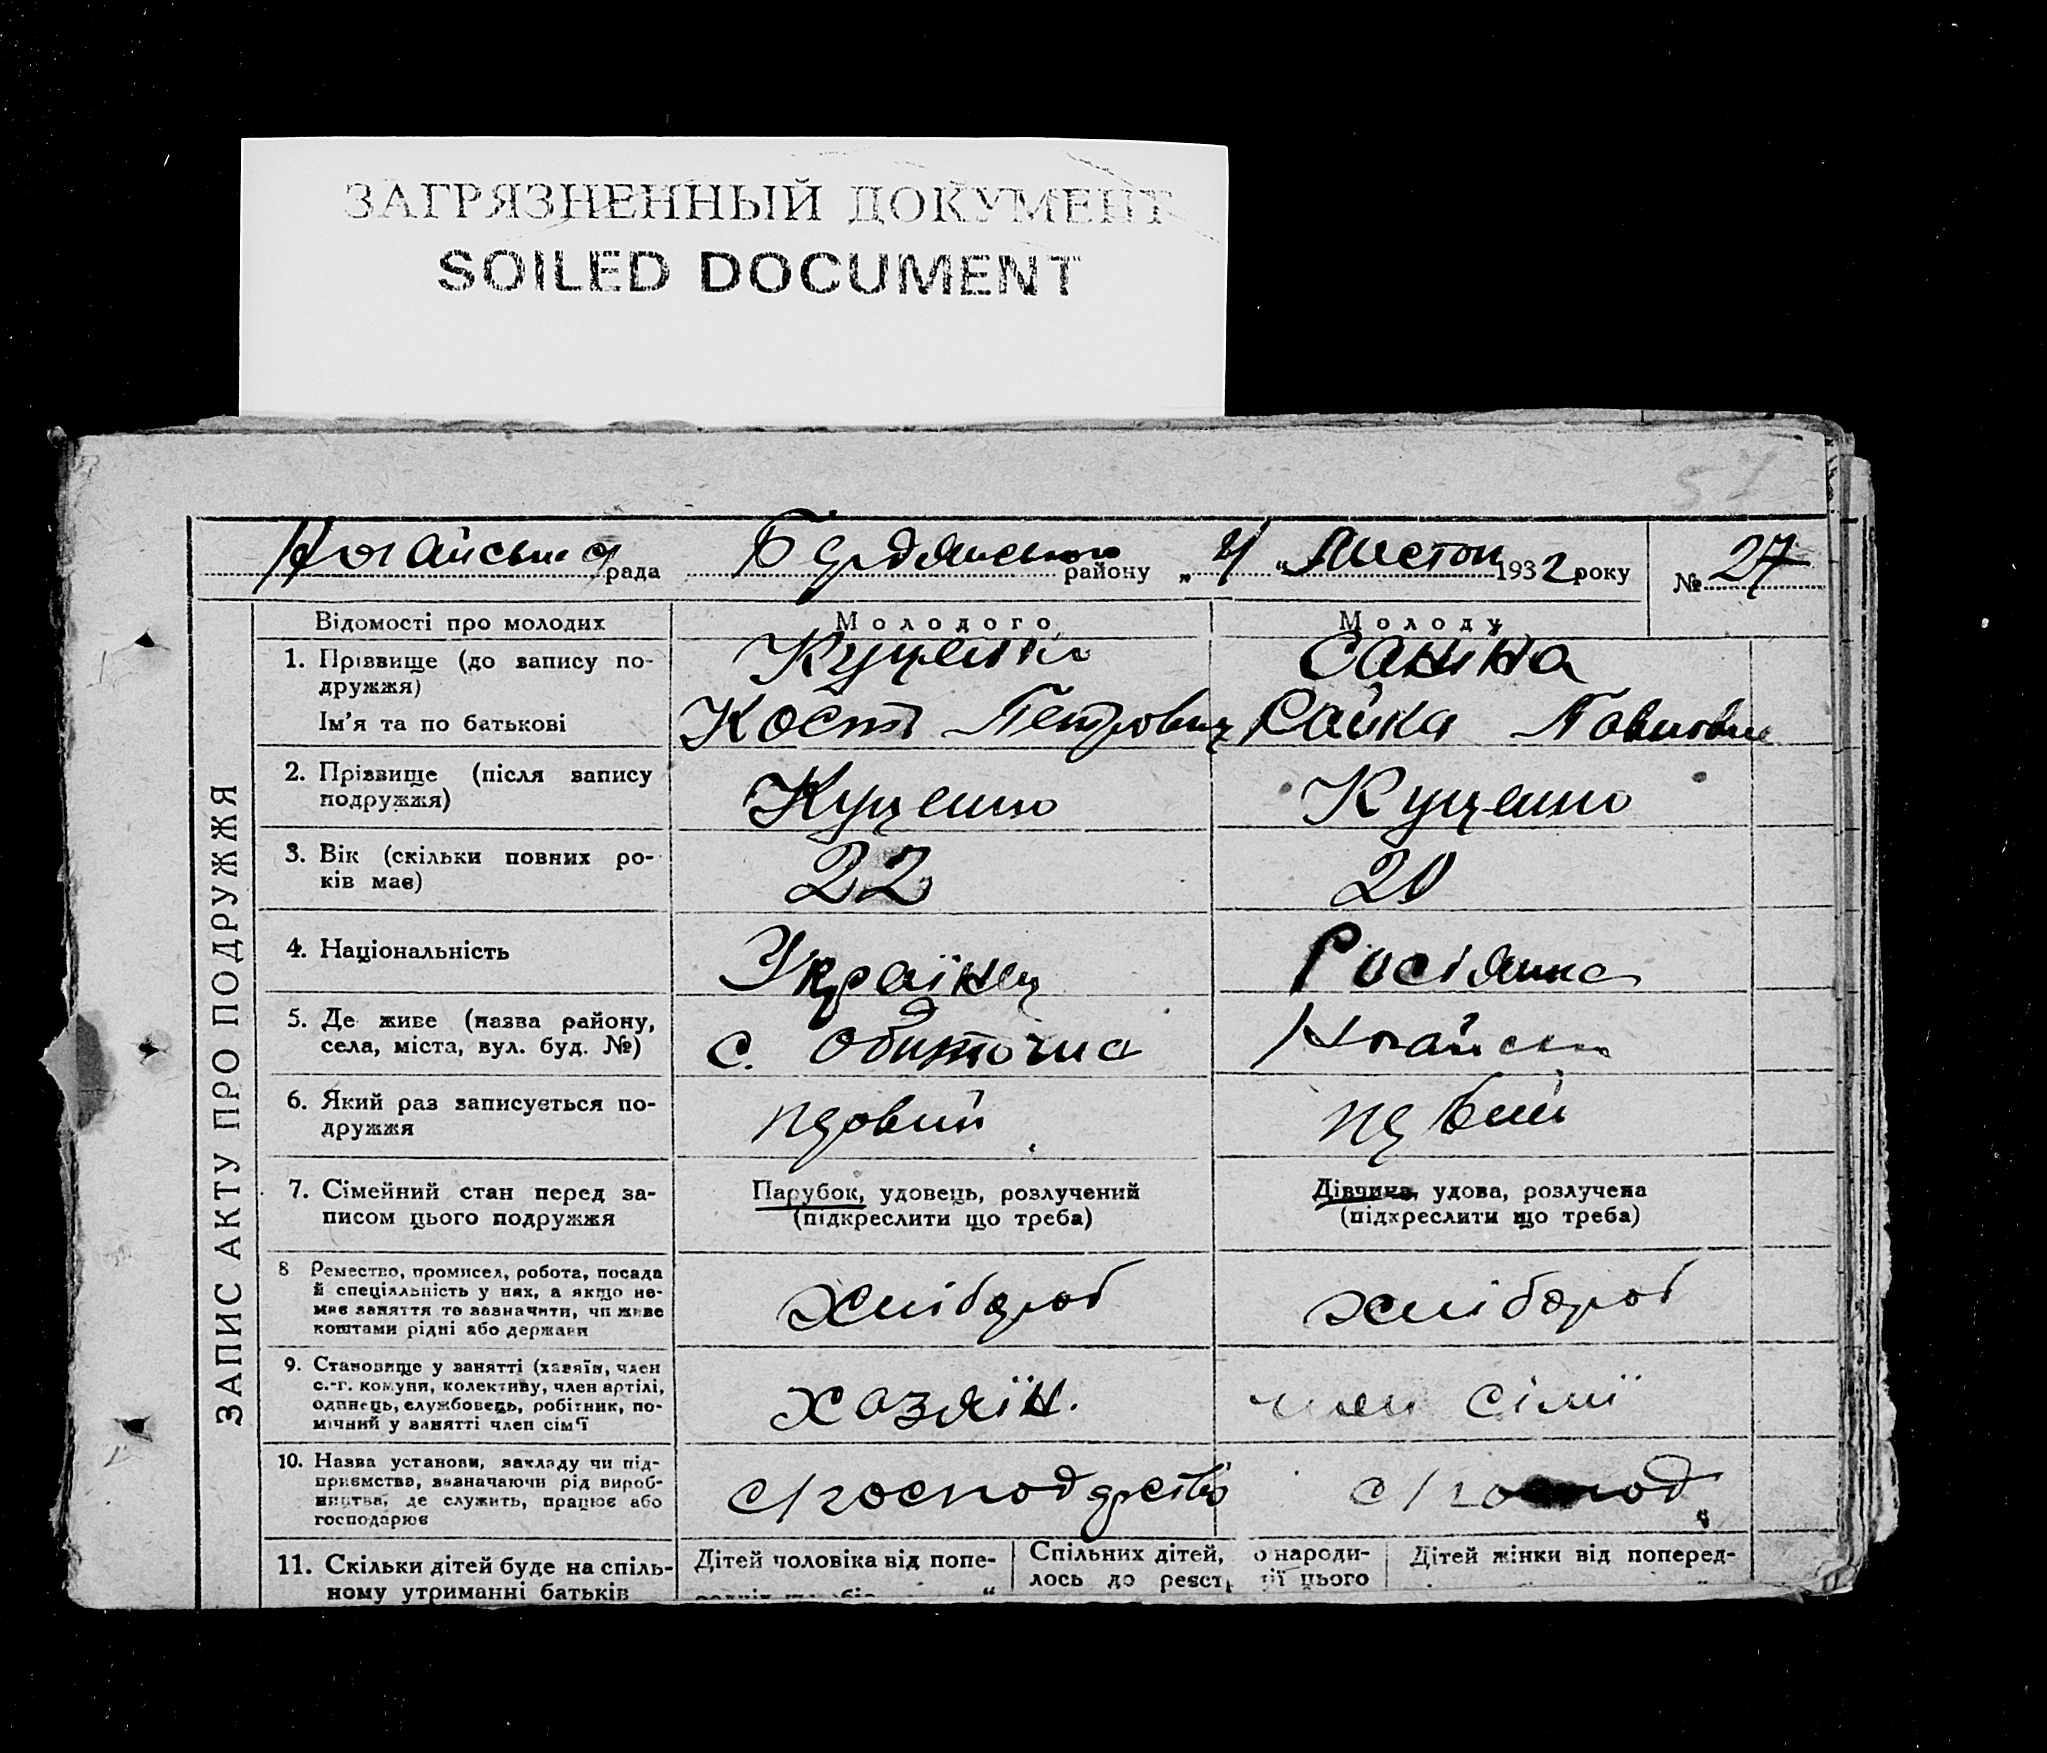 ЗАГРЯЗНЕННЫЙ ДОКУМЕНТ
SOILED DOCUMENT
57
Ногайська рада Бердянського району „4“ Листоп 1932 року № 27
ЗАПИС АКТУ ПРО ПОДРУЖЖЯ
Відомості про молодих Молодого Молоду
1. Прізвище (до запису по-
дружжя)
Куценко Саніна
Ім'я та по батькові Кость Петрович Райка Павловна
2. Прізвище (після запису
подружжя)
Куценко Куценко
3. Вік (скільки повних ро-
ків має)
22 20
4. Національність Українец Росіянка
5. Де живе (назва району,
села, міста, вул. буд. №)
с. Обиточна Ногайськ
6. Який раз записується по-
дружжя
первий первий
7. Сімейний стан перед за-
писом цього подружжя
Парубок, удовець, розлучений
(підкреслити що треба)
Дівчина, удова, розлучена
(підкреслити що треба)
8 Ремество, промисел, робота, посада
й спеціяльність у них, а якщо не-
має заняття то зазначити, чи живе
коштами рідні або держави
хлібороб хлібороб
9. Становище у занятті (хазяїн, член
с.-г. комуни, колективу, член артілі,
одинець, службовець, робітник, по-
мічний у занятті член сім'ї
хазяїн. член сімї
10. Назва установи, закладу чи під-
приємства, зазначаючи рід вироб-
ництва, де служить, працює або
господарює
с/господарство с/господ.
11. Скільки дітей буде на спіль-
ному утриманні батьків
Дітей чоловіка від попе-
Спільних дітей, о народи-
лось до реєстр ії цього
Дітей жінки від поперед-